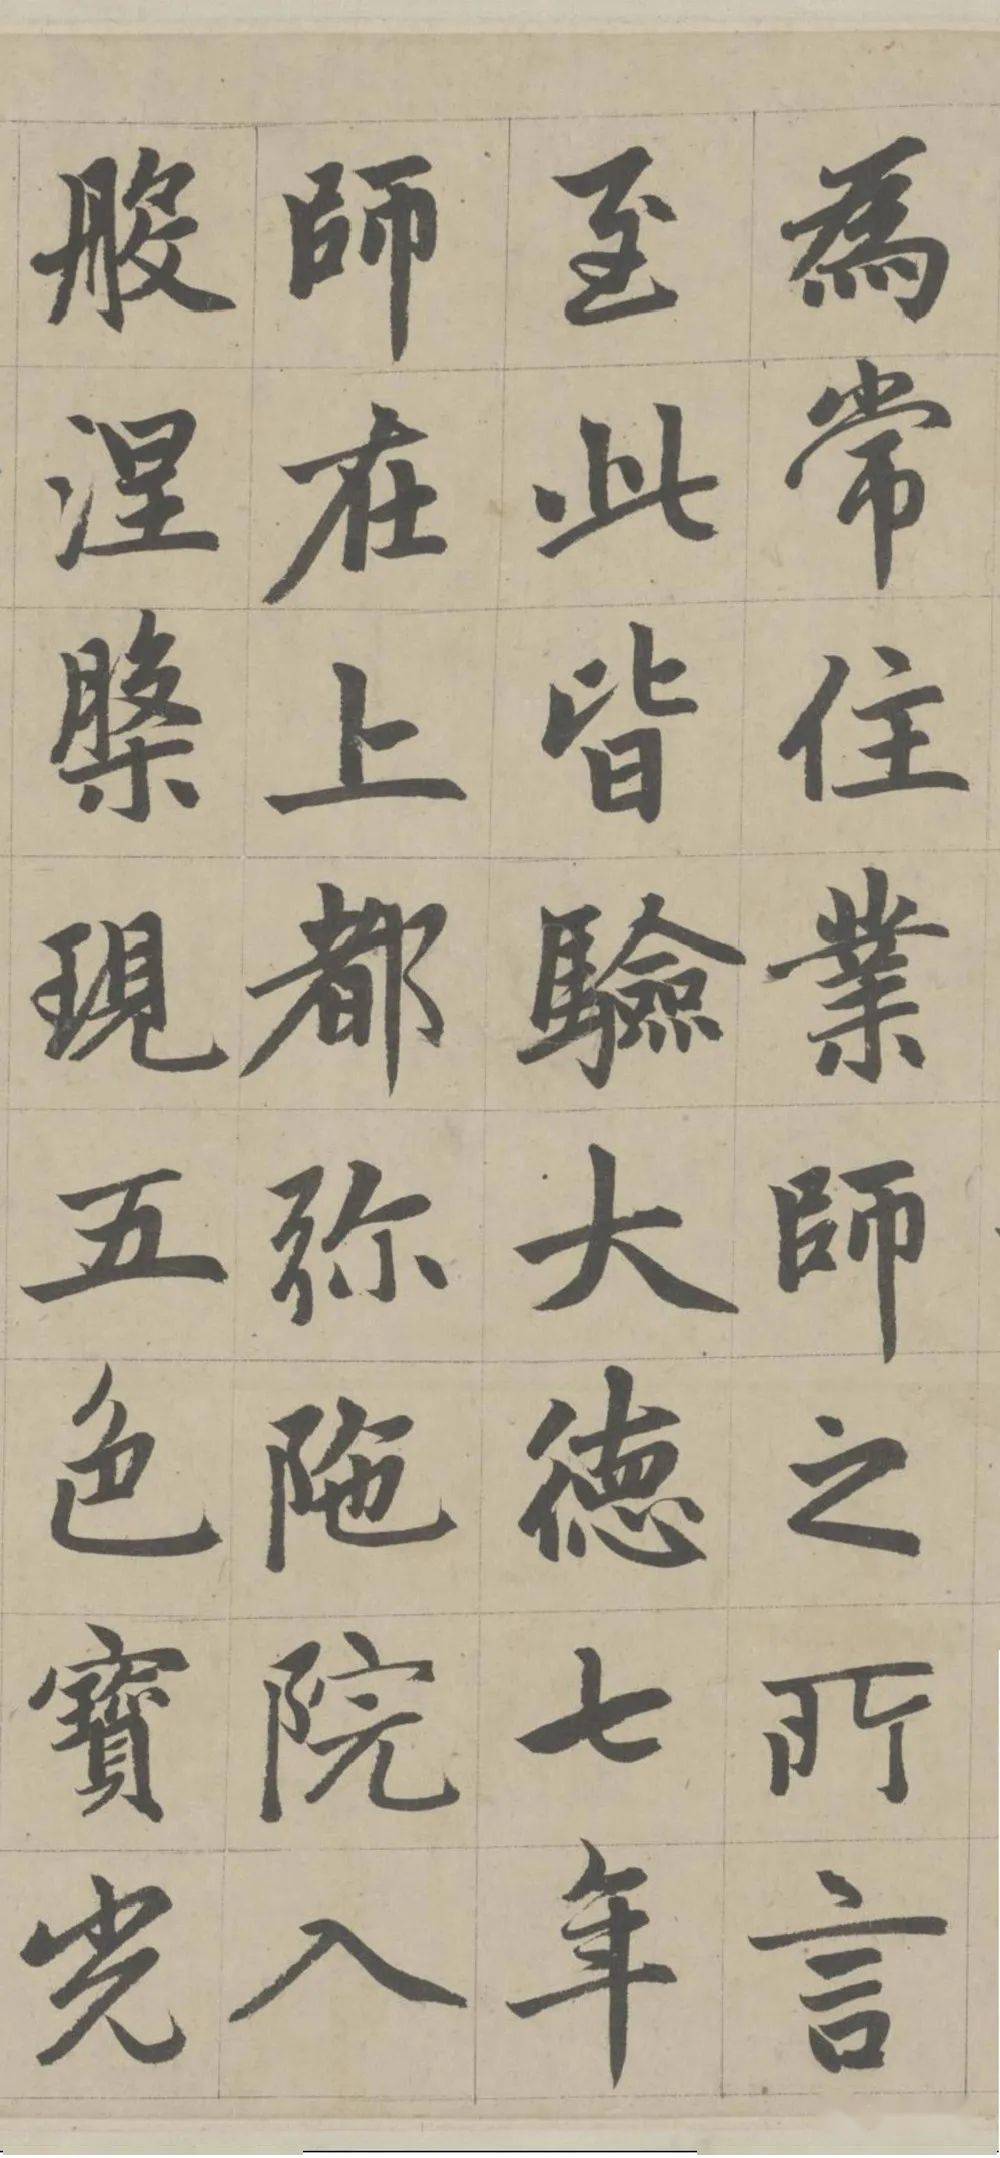 為常住業師之所言
至此皆驗大德七年
師在上都弥陁院入
般涅槃現五色寶光